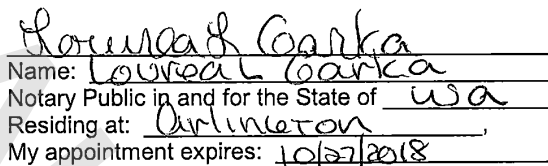 Name: Loureal Garka
Notary Public in and for the State of WA
Residing at: Arlington,
My appointment expires: 10/27/2018